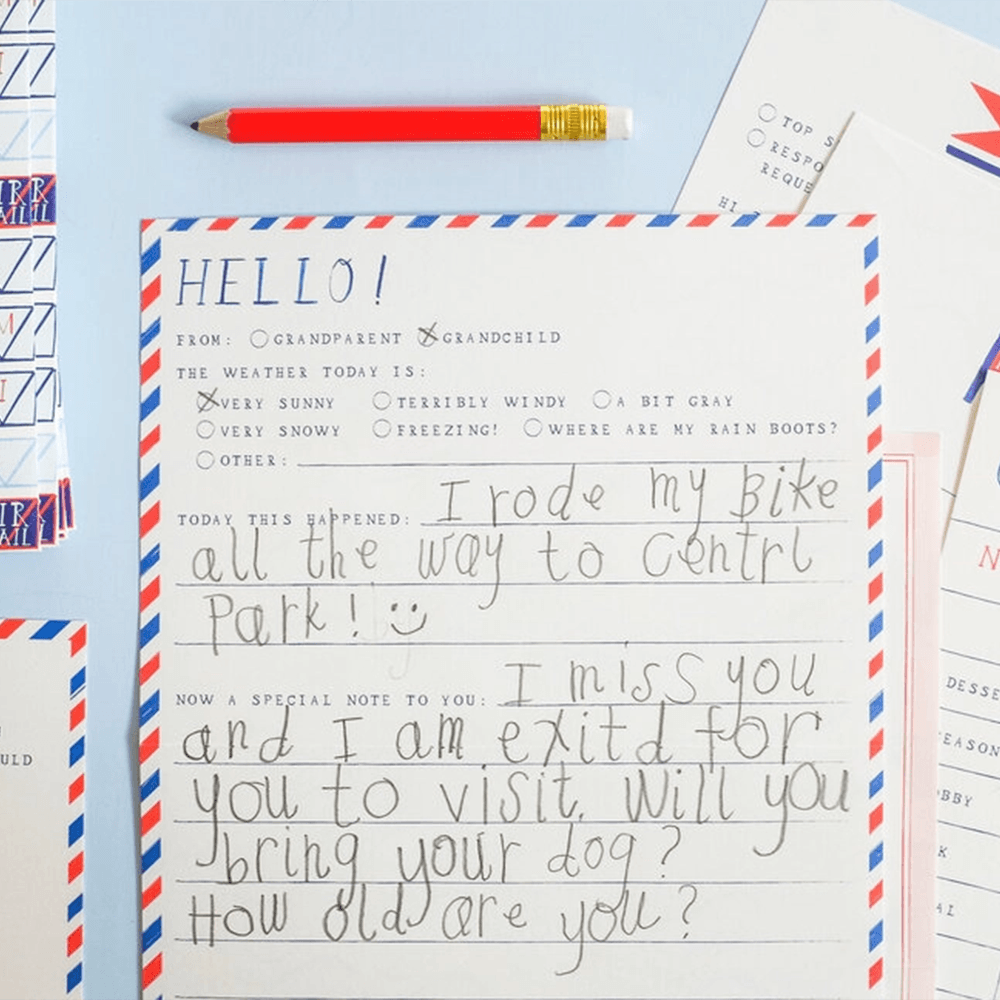 TOP
RESPO
REQUE
HI
HELLO!
FROM: GRANDPARENT GRANDCHILD
THE WEATHER TODAY IS:
VERY SUNNY TERRIBLY WINDY A BIT GRAY
VERY SNOWY FREEZING! WHERE ARE MY RAIN BOOTS?
OTHER:
TODAY THIS HAPPENED: I rode my Bike
all the way to Centrl
Park! :)
NOW A SPECIAL NOTE TO YOU: I miss you
and I am exitd for
you to visit. Will you
bring your dog?
How old are you?
ULD
DESSE
EASON
BBY
K
AL